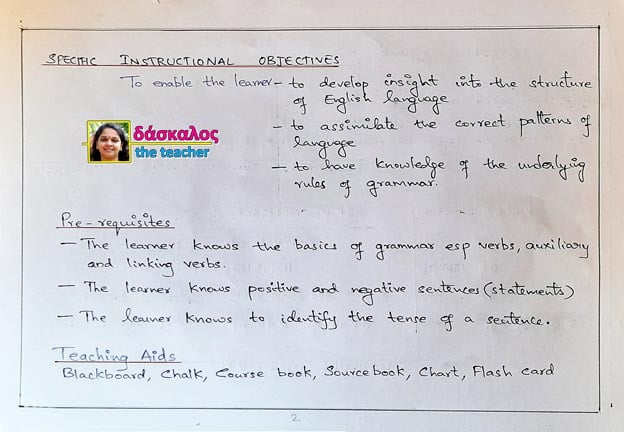 SPECIFIC INSTRUCTIONAL OBJECTIVES
To enable the learner - to develop insight into the structure
of English language
- to assimilate the correct patterns of
language
- to have knowledge of the underlying
rules of grammar.
δάσκαλος
the teacher
Pre-requisites
- The learner knows the basics of grammar esp verbs, auxiliary
and linking verbs.
- The learner knows positive and negative sentences (statements)
- The learner knows to identify the tense of a sentence.
Teaching Aids
Blackboard, Chalk, Course book, Sourcebook, Chart, Flash card
2